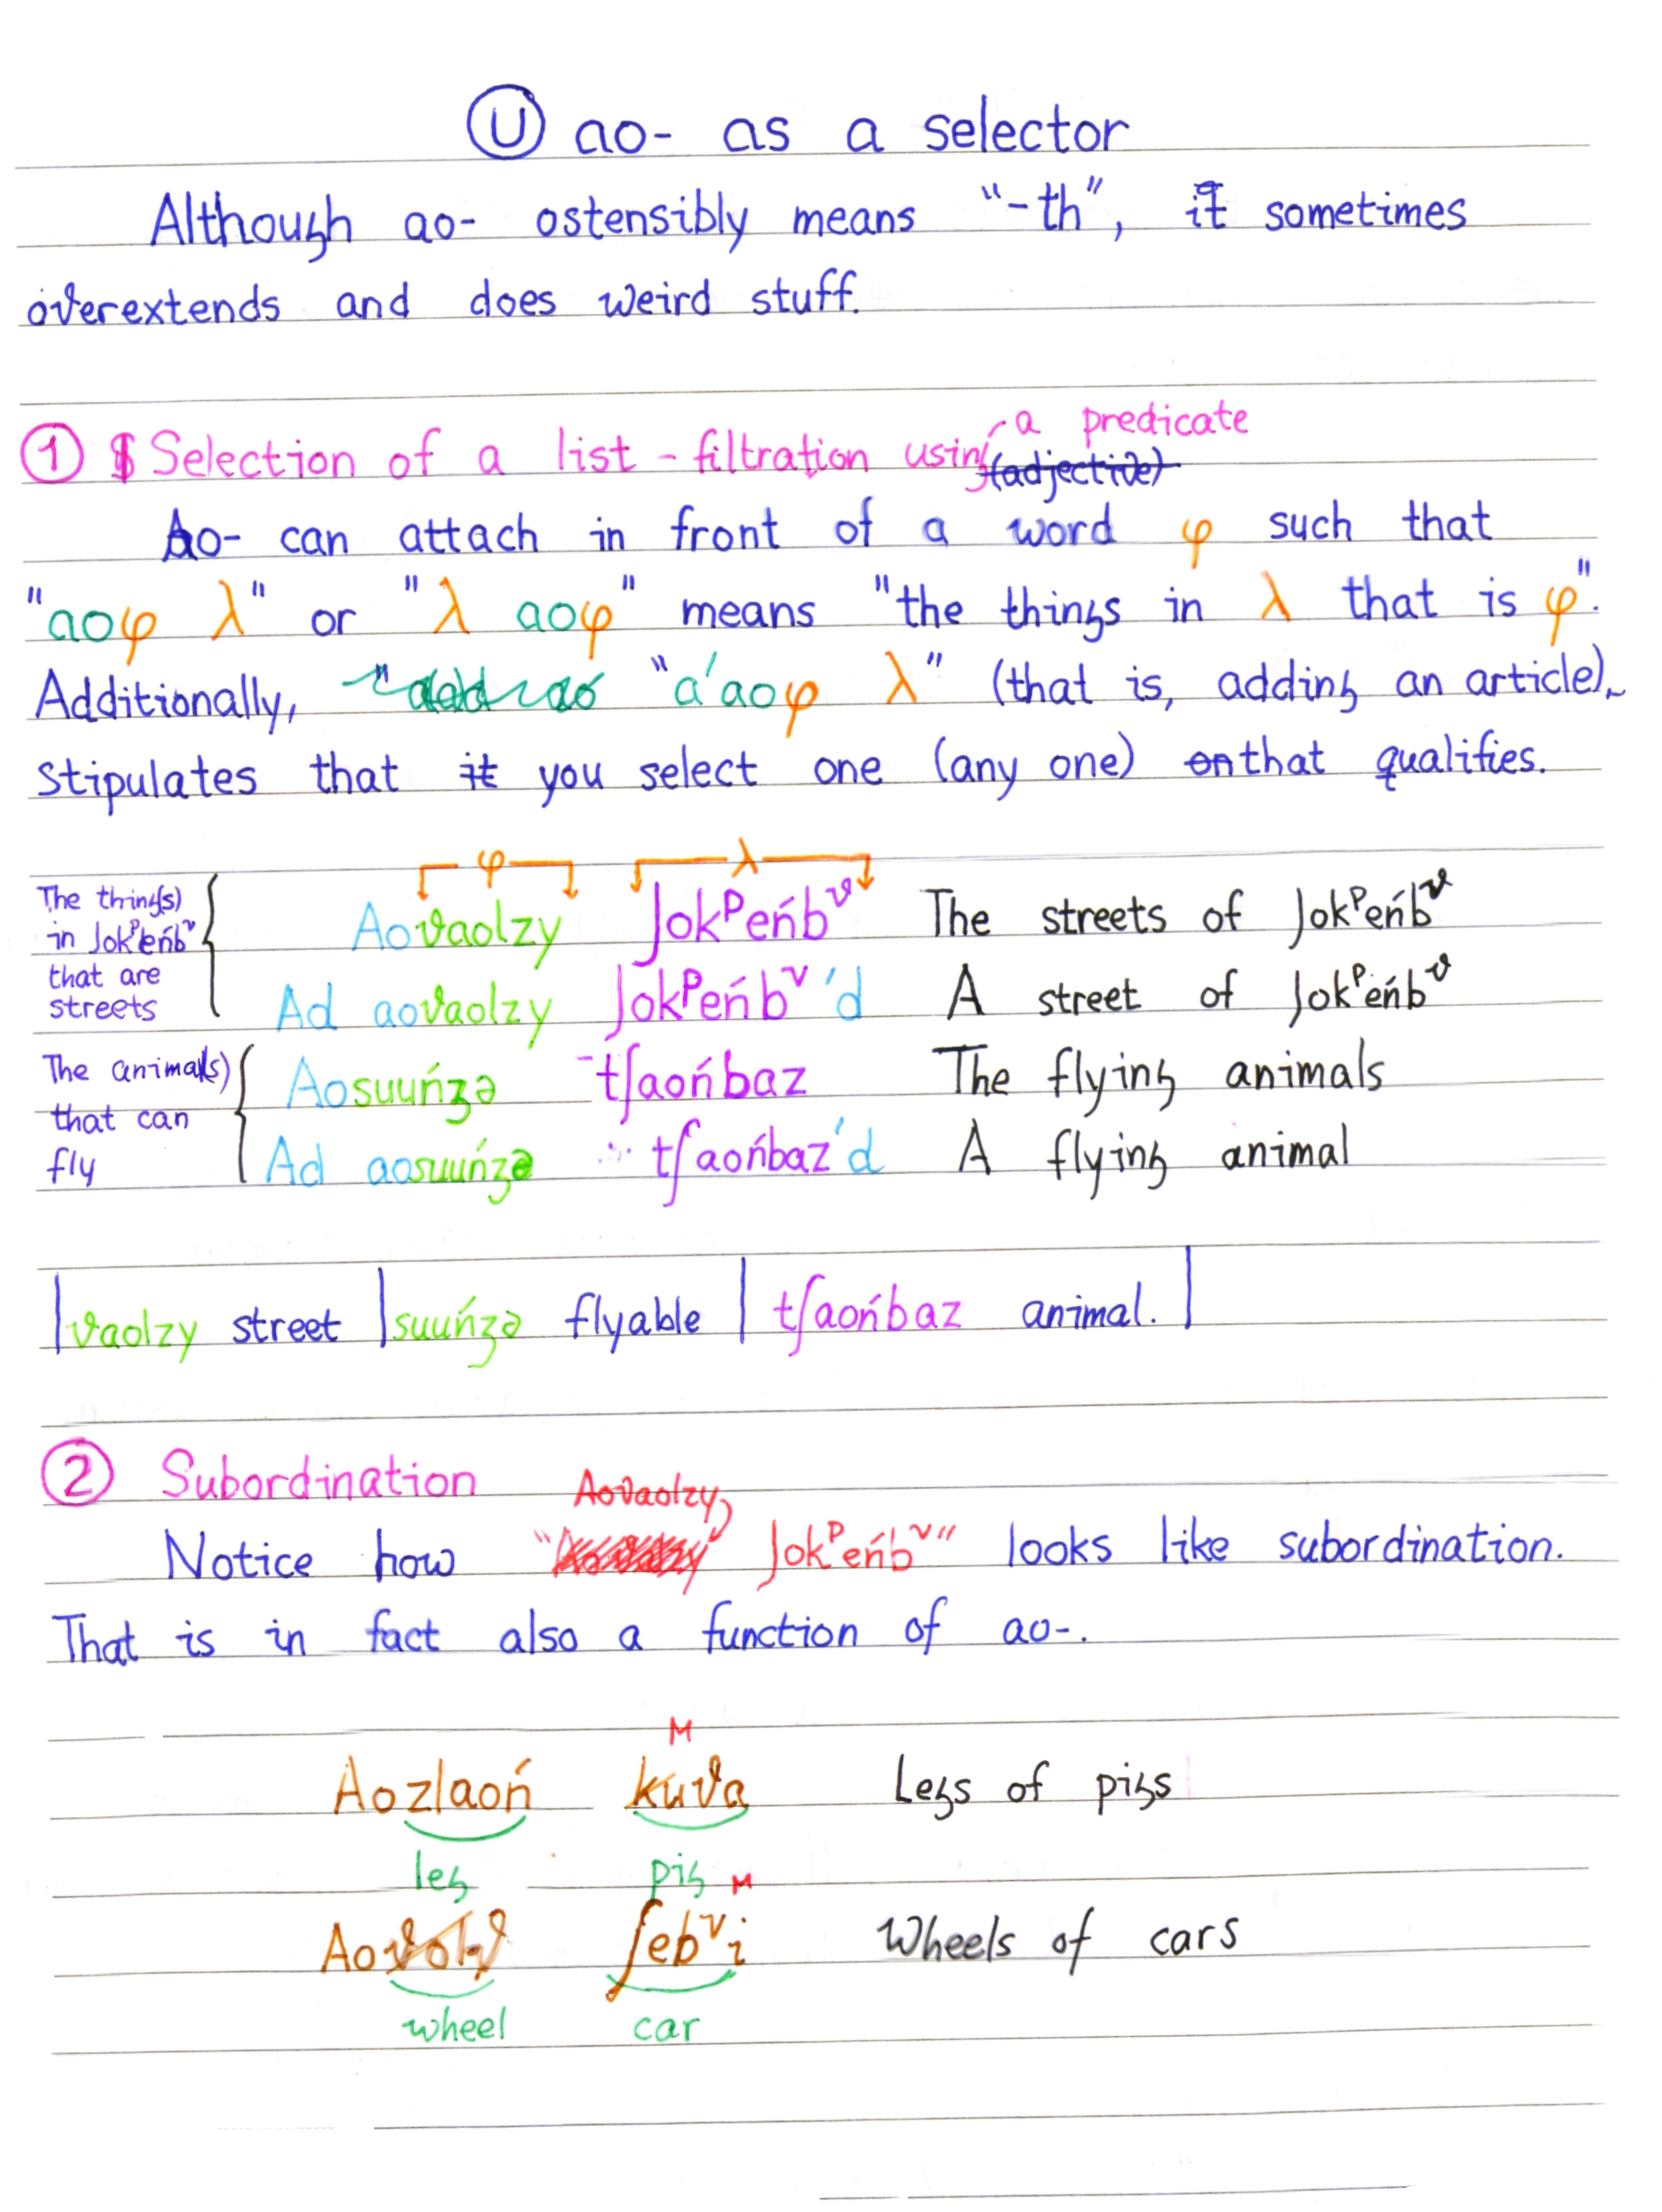 Ⓤ ao- as a selector
Although ao- ostensibly means "-th", it sometimes
overextends and does weird stuff.
① Selection of a list - filtration using a predicate
(adjective)
Ao- can attach in front of a word φ such that
"aoφ λ" or "λ aoφ" means "the things in λ that is φ".
Additionally, "a'aoφ λ" (that is, adding an article)
stipulates that it you select one (any one) on that qualifies.
φ λ
The thing(s) in Jokᵖeńbᵛ that are streets
Aovaolzy Jokᵖeńbᵛ The streets of Jokᵖeńbᵛ
Ad aovaolzy Jokᵖeńbᵛ'd A street of Jokᵖeńbᵛ
The animal(s) that can fly
Aosuuńʒə tʃaońbaz The flying animals
Ad aosuuńʒə tʃaońbaz'd A flying animal
| vaolzy street | suuńʒə flyable | tʃaońbaz animal. |
② Subordination
Aovaolzy,
Notice how " Jokᵖeńbᵛ" looks like subordination.
That is in fact also a function of ao-.
M
Aozlaoń kuva Legs of pigs
leg pig M
ʃebᵛi Wheels of cars
wheel car